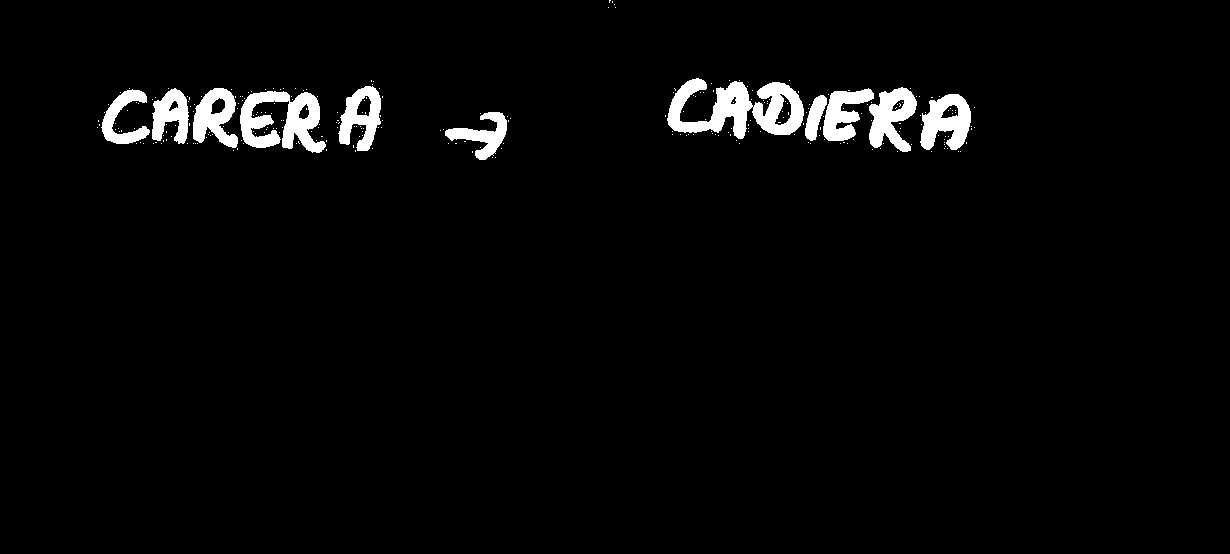 CARERA → CADIERA